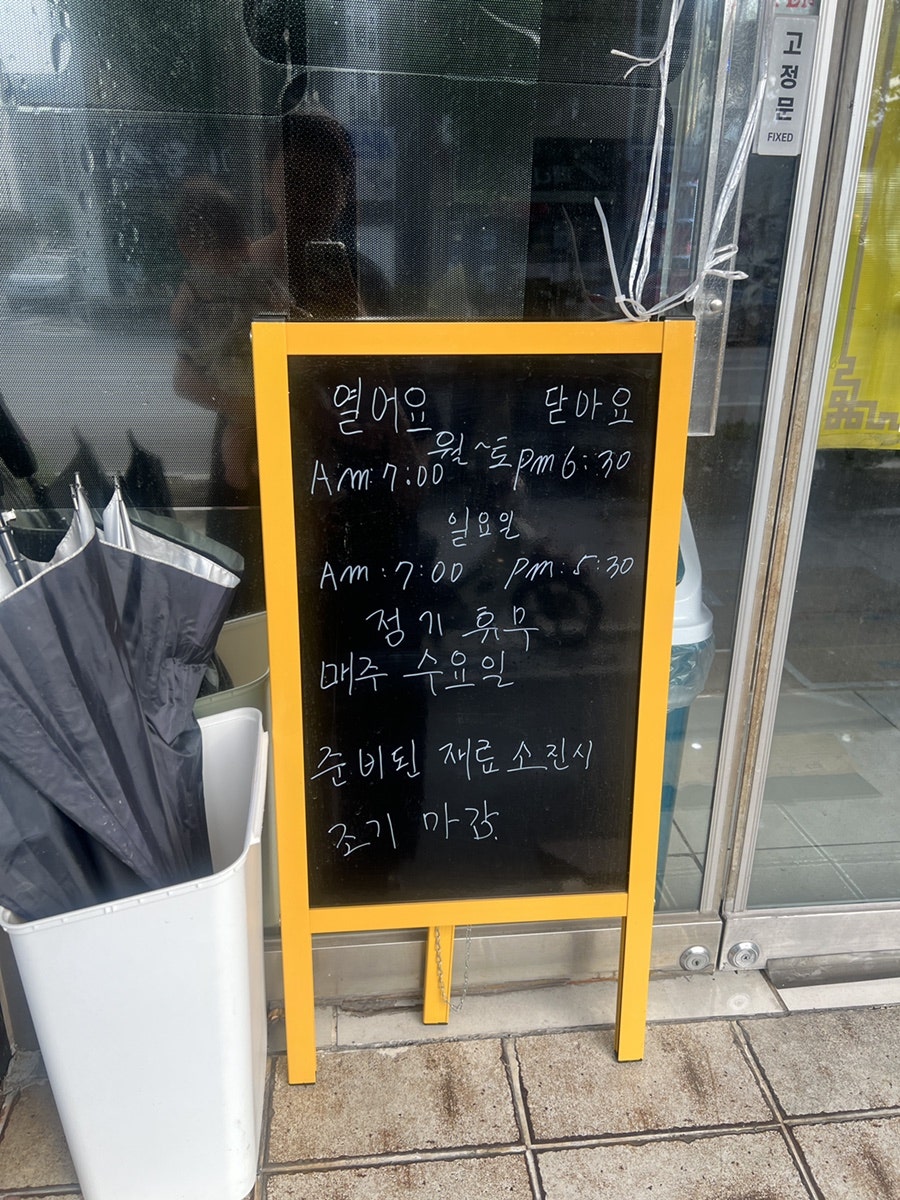 고정문
FIXED
열어요 닫아요
월~토
Am:7:00 pm6:30
일요일
Am:7:00 pm:5:30
정기 휴무
매주 수요일
준비된 재료소진시
조기 마감.